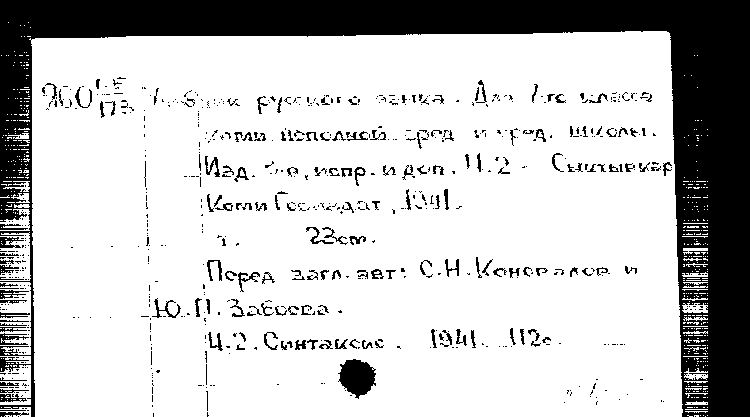 Учебник русского языка. Для 7-го класса
коми неполной сред. и сред. школы.
Изд. испр. и доп. Ч.2 - Сыктывкар
Коми Госиздат, 1941.
т. 23 cm.
Перед загл. авт: С.Н. Коновалов и
Ю.П. Забоева.
Ч.2. Синтаксис. 1941. 112 с.